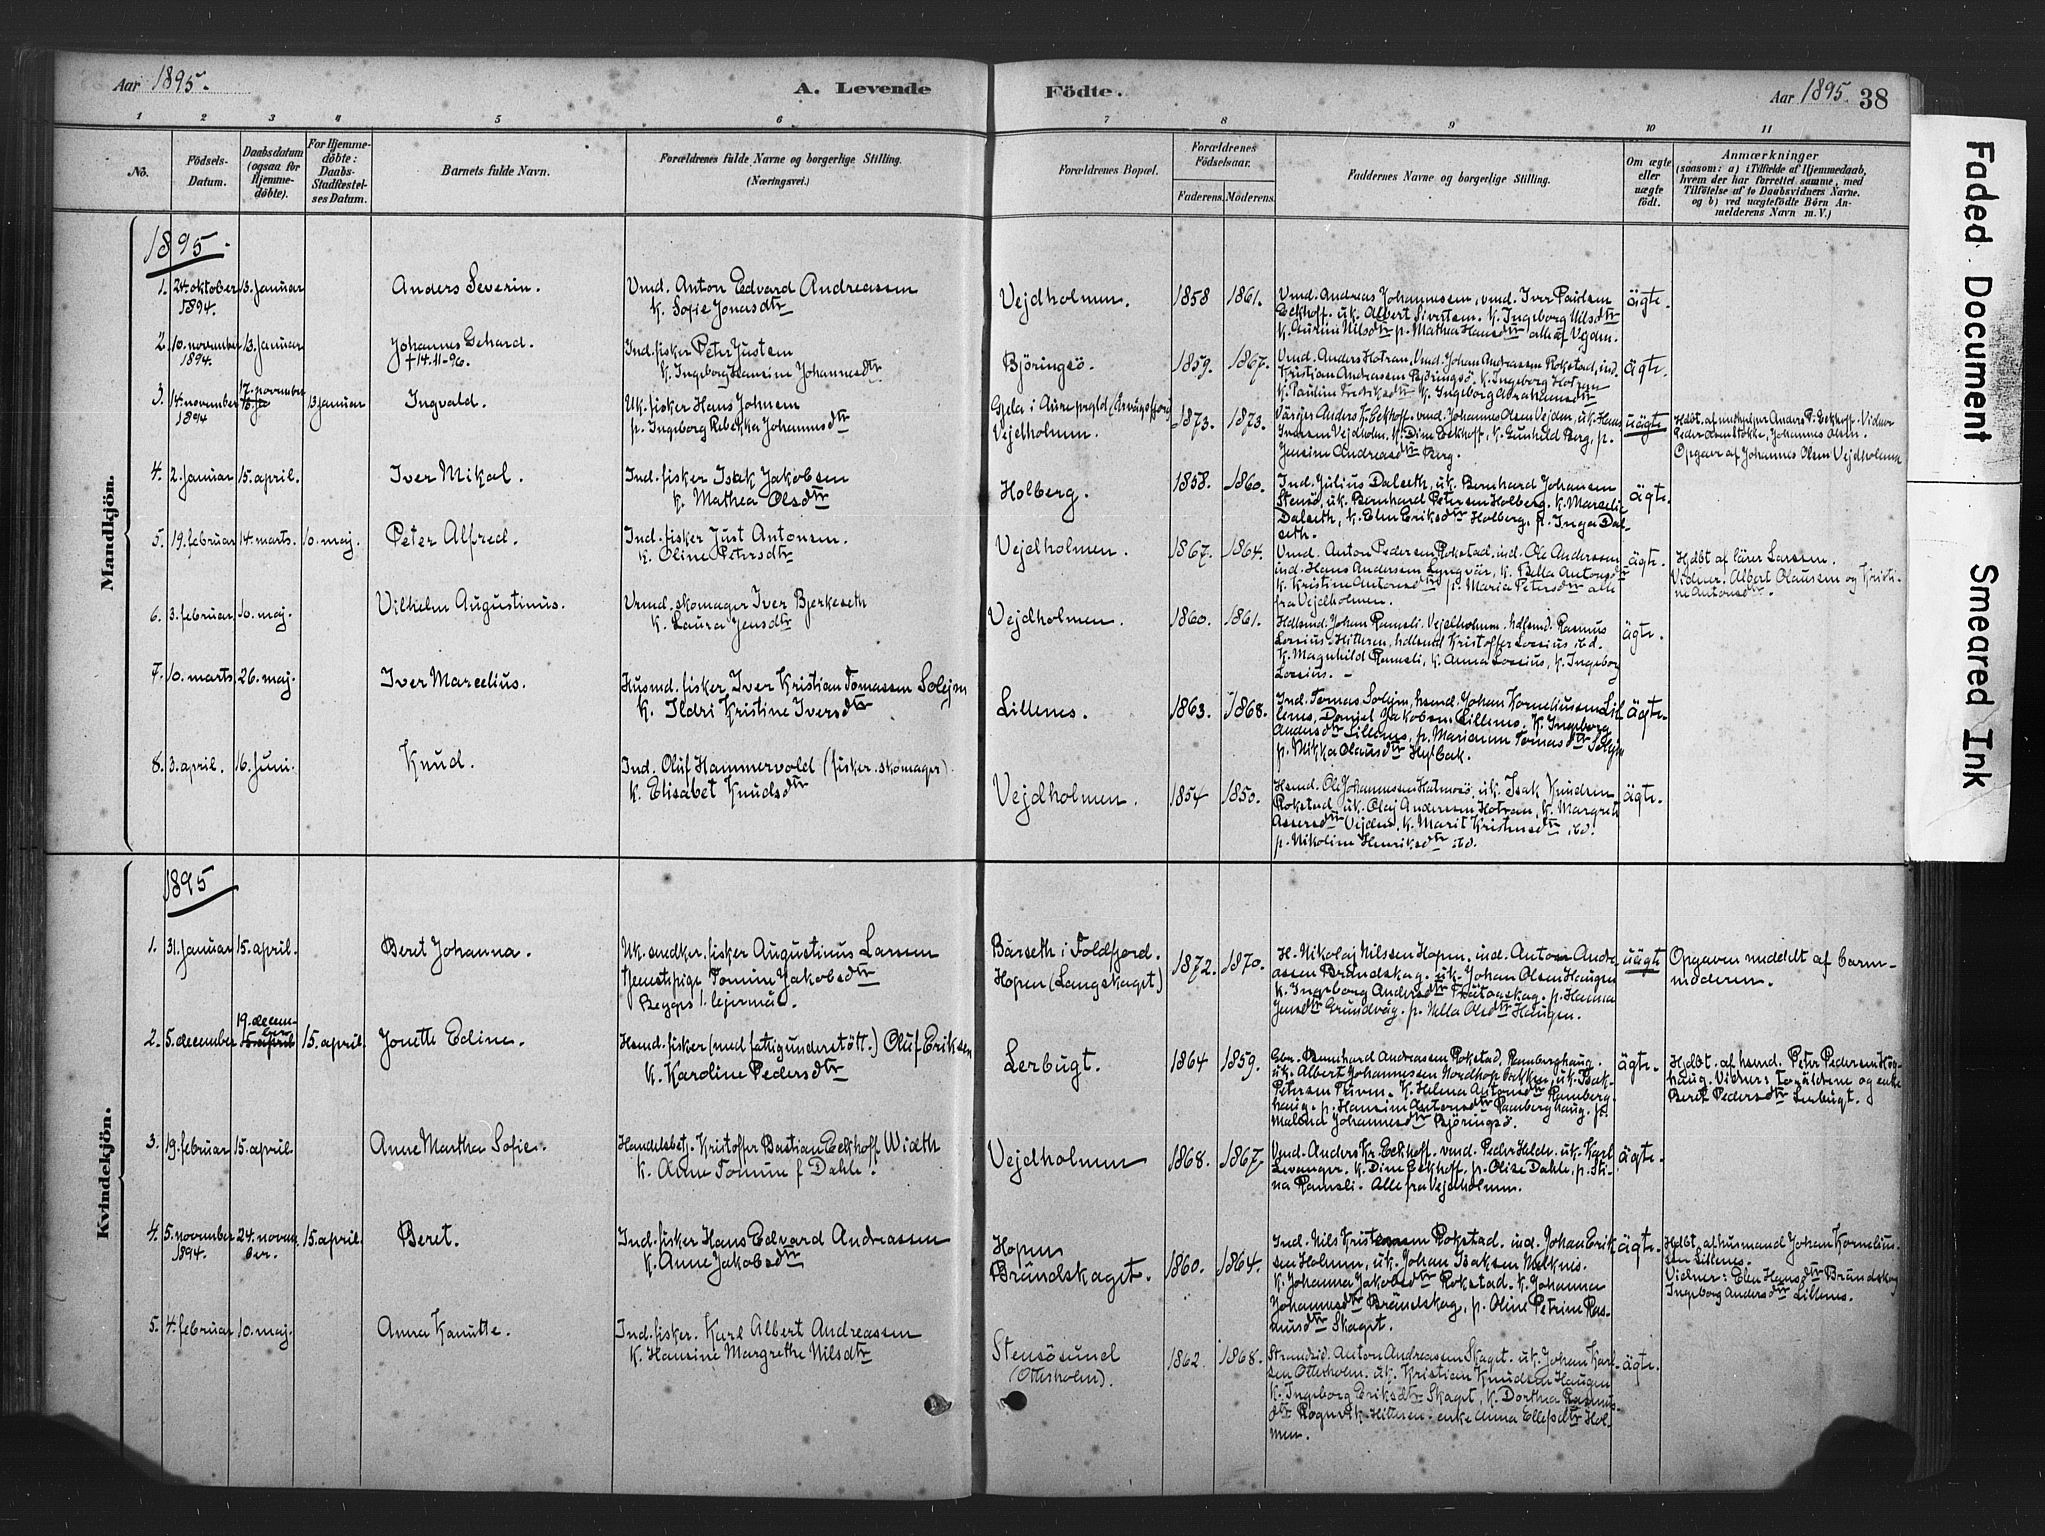 Aar 1895.
A. Levende
Födte.
Aar 1895.
38
1 2 3 4 5 6 7 8 9 10 11
No.
Födsels-
Datum.
Daabsdatum
(ogsaa for
Hjemme-
döbte).
For Hjemme-
döbte:
Daabs-
Stadfæstel-
ses Datum.
Barnets fulde Navn.
Forældrenes fulde Navne og borgerlige Stilling.
(Næringsvei.)
Forældrenes Bopæl.
Forældrenes
Födselsaar.
Faderens. Moderens.
Faddernes Navne og borgerlige Stilling.
Om ægte
eller
uægte
födt.
Anmærkninger
(saasom: a) i Tilfælde af Hjemmedaab,
hvem der har forrettet samme, med
Tilföielse af to Daabsvidners Navne.
og b) ved uægtefödte Börn An-
melderens Navn m. V.)
Mandkjön.
1895.
1. 24. oktober 1894. 13. Januar
Anders Severin.
Vmd. Anton Edvard Andreassen
k. Sofie Jonasdtr
Vejdholmen.
1858 1861.
Vmd. Andreas Johannessen, vmd. Iver Paulsen
Eckhoff. uk. Albert Sivertsen. k. Ingeborg Nilsdtr
k. Aurine Nilsdtr p. Mathea Hansdtr alle af Vejden.
ägte.
2. 10. november 1894. 13. Januar
Johannes Gehard.
† 14.11-96.
Ind. fisker Peter Justsen
k. Ingeborg Hansine Johannesdtr
Björingsö.
1859. 1867.
Vmd. Anders Hotran, vmd. Johan Andreassen Rokstad, ind.
Kristian Andreassen Björingsö. k. Ingeborg Hotran
k. Pauline Fredriksdtr k. Ingeborg Abrahamsdtr
ägte.
3. 14. november 1894 17. november 13 januar
Ingvald.
Uk. fisker Hans Johnsen
p. Ingeborg Rebekka Johannesdtr
Gjela i Aure prgld (Årvågsfjord)
Vejdholmen.
1873. 1873.
Anders K. Eckhoff. vmd. Johannes Olsen Vejden, uk. Hans
Iversen Vejdholm, k. Dine Eckhoff, k. Gunhild Berg, p.
Jensine Andreasdtr Berg.
uägte
Hdbt. af Anders K. Eckhoff. Vidner
Johannes Olsen.
Opgaver af Johannes Olsen Vejdholmen
4. 2. Januar 15. april.
Iver Mikal.
Ind. fisker Isak Jakobsen
k. Mathea Olsdtr
Holberg.
1858. 1860.
Ind. Julius Dalseth, uk. Bernhard Johansen
Stensö, uk. Bernhard Petersen Holberg. k. Marcelie
Dalseth, k. Elen Eriksdtr Holberg, p. Inga Dal-
seth.
ägte.
5. 19. februar 14. marts. 10. maj.
Peter Alfred.
Ind. fisker Just Antonsen.
k. Oline Petersdtr
Vejdholmen.
1867. 1864.
Vmd. Anton Pedersen Rokstad. ind. Ole Andersen
ind. Hans Andersen Lyngvär, k. Bella Antonsdtr
k. Kristine Antonsdtr p. Maria Petersdtr alle
fra Vejdholmen.
ägte.
Hjdbt af lärer Larsen.
Vidner: Albert Olaussen og Kristi-
ne Antonsdtr.
6. 3. februar 10. maj.
Vilhelm Augustinus.
Vmd. skomager Iver Bjerkeseth
k. Laura Jensdtr
Vejdholmen.
1860. 1861.
Hdlsmd. Johan Ramsli. Vejdholmen. hdlsmd. Rasmus
Lossius Hitteren, hdlsmd Kristoffer Lossius ibd.
k. Magnhild Ramsli, k. Anna Lossius, k. Ingeborg
Lossius. –
ägte.
7. 10. marts. 26. maj.
Iver Marcelius.
Husmd. fisker Iver Kristian Tomassen Solejm
k. Ildri Kristine Iversdtr
Lillenes.
1863. 1868.
Ind. Tomas Solejm, hsmd. Johan Korneliussen Lil-
lenes, Daniel Jakobsen Lillenes, k. Ingeborg
Andersdtr Lillenes, p. Marianne Tomasdtr Solejm
p. Mikka Olausdtr Hejbak.
ägte.
8. 3. april. 16. Juni.
Knud.
Ind. Oluf Hammervold (fisker. skomager).
k. Elisabet Knudsdtr
Vejdholmen.
1854 1850.
Hsmd. Ole Johannessen Halmosö, uk. Isak Knudsen
Rokstad. uk. Olaj Andersen Hotran, k. Margrete
Assersdtr Vejden, k. Marit Kristensdtr ibd.
p. Nikoline Henriksdtr ibd.
ägte.
Kvindekjön.
1895
1. 31. Januar 15. april.
Beret Johanna.
Uk. snedker. fisker Augustinus Larsen
Tjenestepige Tomine Jakobsdtr
Begges 1. lejermål.
Bårseth i Foldfjord.
Hopen (Langskaget)
1872. 1870.
H. Nikolaj Nilssen Hopen, ind. Anton Andre-
assen Brändskag. uk. Johan Olsen Haugen
k. Ingeborg Andersdtr p. Hanna
Jensdtr Grundvåg. p. Nella Olsdtr Haugen.
uägte
Opgaven meddelt af barne-
moderen.
2. 5. december 19. decem-
ber 15. april.
Jonette Edine.
Hsmd. fisker (med fattigunderstött.) Oluf Eriksen
k. Karoline Pedersdtr
Lerbugt.
1864 1859.
Gbr. Bernhard Andreassen Rokstad, Ramberghaug.
uk. Albert Johannessen Nordhopbrekken, uk. Isak
Petersen k. Helena Antonsdtr Ramberg-
haug. p. Hansine Antonsdtr Ramberghaug. p.
Malena Johannesdtr Björingsö.
ägte.
Hjdbt. af hsmd. Peter Pedersen
Vidner: Foräldrene og enke
Beret Pedersdtr Lerbugt.
3. 19. februar 15. april.
Anne Martha Sofie.
Handelsbetj. Kristoffer Bastian Eckhoff Width
k. Anne Tomine f. Dahle.
Vejdholmen
1868. 1867.
Vmd. Anders Kr. Eckhoff. vmd. Peder Helde. uk. Karl
Levanger. k. Dine Eckhoff, p. Olise Dahle, p. Sti-
na Ramsli. Alle fra Vejdholmen.
ägte.
4. 5. november 1894. 24. novem-
ber. 15. april.
Beret.
Ind. fisker Hans Edvard Andreassen
k. Anne Jakobsdtr
Hopen
Brändskaget.
1860. 1864.
Ind. Nils Kristensen Rokstad. ind. Johan Erik-
sen Holmen, uk. Johan Isaksen Melknes.
k. Johanna Jakobsdtr Rokstad. k. Johanna
Johannesdtr Brändskag, p. Oline Petrine Ras-
musdtr Skaget.
ägte.
Hdbt. af husmand Johan Kornelius-
sen Lillenes.
Vidner: Elen Hansdtr Brändskag
Ingeborg Andersdtr Lillenes.
5. 4. februar 10. maj.
Anna Kanutte.
Ind. fisker. Karl Albert Andreassen
k. Hansine Margrethe Nilsdtr
Stensösund
(Otterholm).
1862. 1868.
Strandsid. Anton Andreassen Skaget. uk. Johan Karl-
sen Otterholm. uk. Kristian Knudsen Haugen
k. Ingeborg Eriksdtr Skaget, k. Dorthea Rasmus-
dtr Rognvik Hitteren. enke Anna Ellefsdtr Hol-
men.
ägte.
Faded Document Smeared Ink